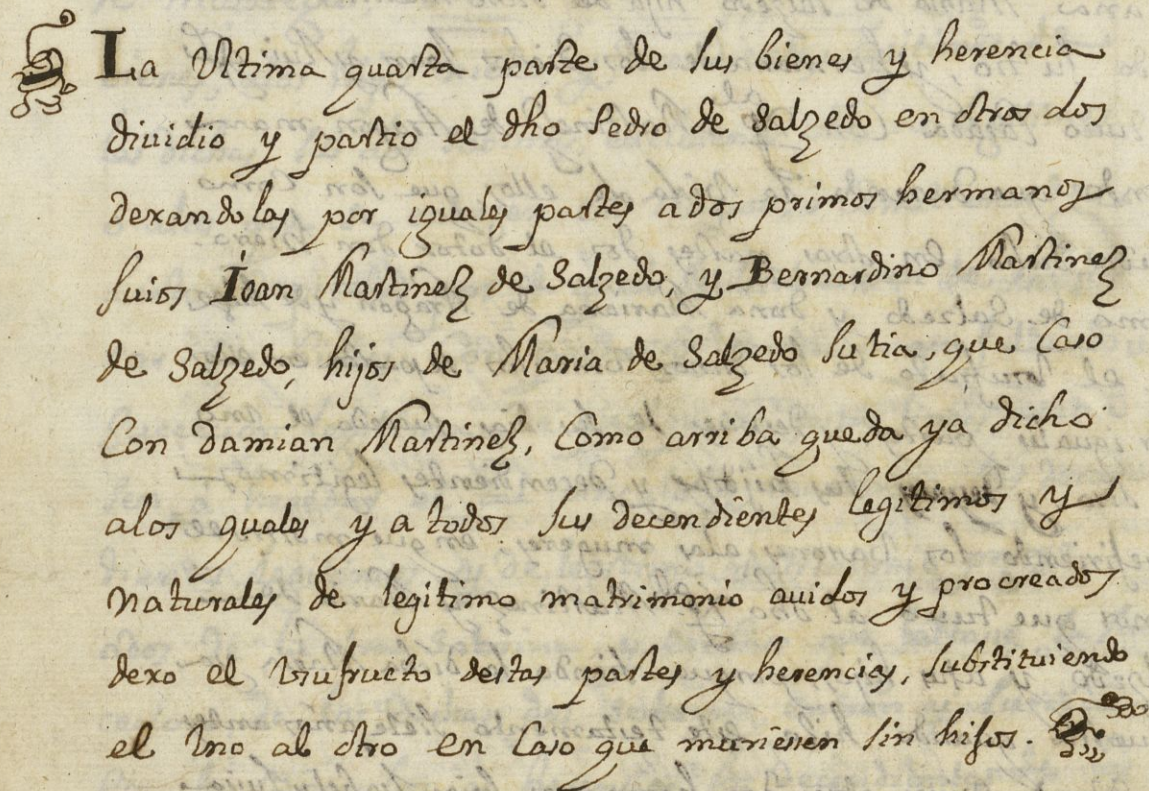 La Vltima quarta parte de sus bienes y herencia
dividio y partio el dho Pedro de Salzedo en otros dos
dexandolas por iguales partes a dos primos hermanos
suios Ioan Martinez de Salzedo, y Bernardino Martinez
de Salzedo, hijos de Maria de Salzedo su tia, que Caso
Con Damian Martinez, Como arriba queda ya dicho
alos quales y a todos sus decendientes legitimos y
naturales de legitimo matrimonio auidos y procreados
dexo el Vsufructo destas partes y herencias, substituiendo
el Vno al otro en Caso que muriessen sin hijos.